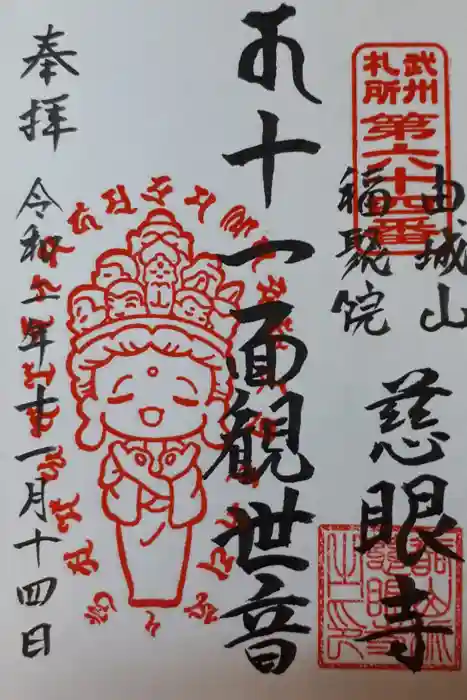 武州
札所
第六十四番
由城山
福聚院
慈眼寺
十一面観世音
奉拝
令和五年十一月十四日